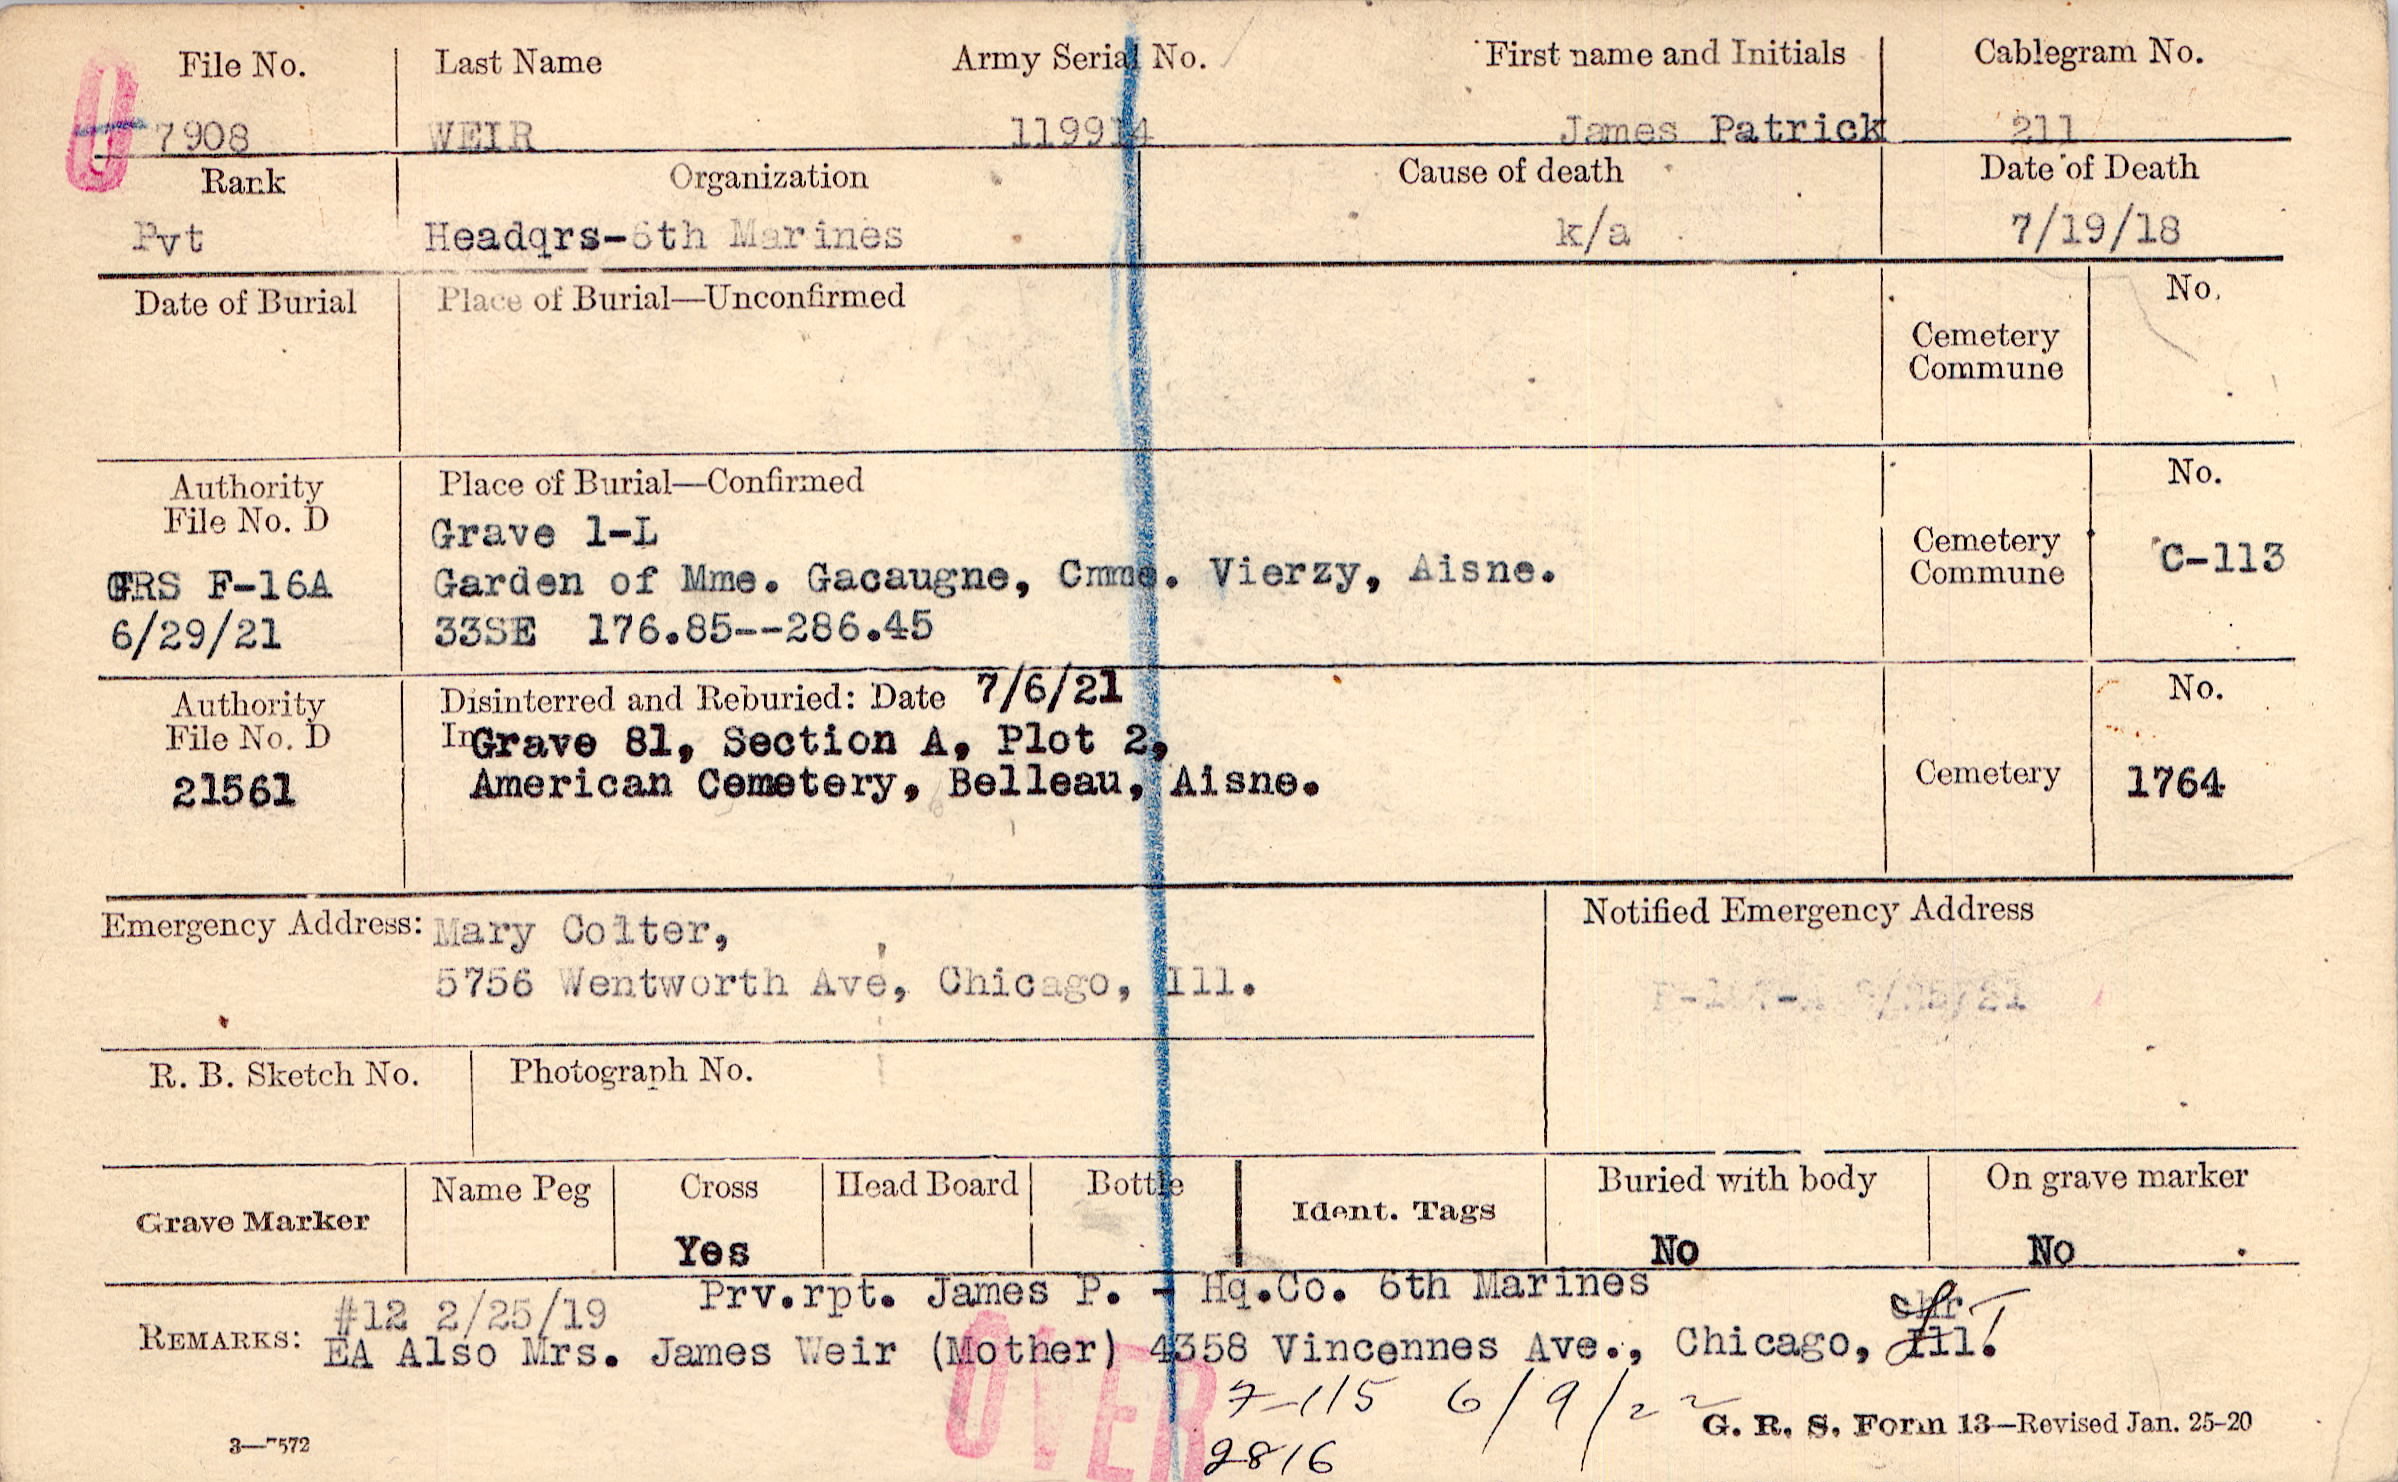 File No. Last Name Army Serial No. First name and Initials Cablegram No.
7908 WEIR 119914 James Patrick 211
Rank Organization Cause of death Date of Death
Pvt Headqrs-6th Marines k/a 7/19/18
Date of Burial Place of Burial—Unconfirmed No.
Cemetery
Commune
Authority Place of Burial—Confirmed No.
File No. D
Grave 1-L
Cemetery
Commune C-113
GRS F-16A Garden of Mme. Gacaugne, Cmme. Vierzy, Aisne.
6/29/21 33SE 176.85--286.45
Authority Disinterred and Reburied: Date 7/6/21 No.
File No. D In Grave 81, Section A, Plot 2,
21561 American Cemetery, Belleau, Aisne. Cemetery 1764
Emergency Address: Mary Colter, Notified Emergency Address
5756 Wentworth Ave, Chicago, Ill.
R. B. Sketch No. Photograph No.
Grave Marker Name Peg Cross Head Board Bottle Ident. Tags Buried with body On grave marker
Yes No No
#12 2/25/19 Prv.rpt. James P. - Hq.Co. 6th Marines
REMARKS: EA Also Mrs. James Weir (Mother) 4358 Vincennes Ave., Chicago, Ill.
OVER
7-115 6/9/22
2816
3—7572 G. R. S. Form 13—Revised Jan. 25-20